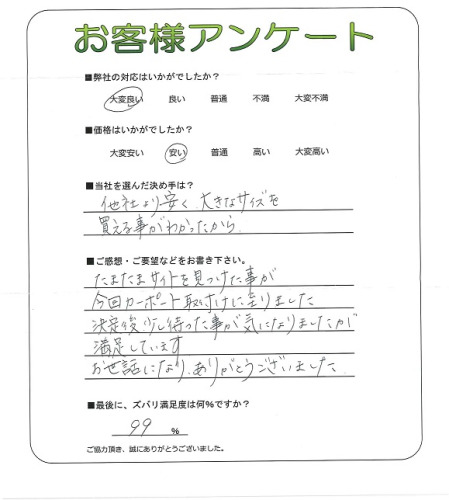 お客様アンケート
■弊社の対応はいかがでしたか？
大変良い 良い 普通 不満 大変不満
■価格はいかがでしたか？
大変安い 安い 普通 高い 大変高い
■当社を選んだ決め手は？
他社より安く、大きなサイズを
買える事がわかったから
■ご感想・ご要望などをお書き下さい。
たまたまサイトを見つけた事が
今回カーポート取付けに至りました
決定後少し待った事が気になりましたが
満足しています
お世話になり、ありがとうございました
■最後に、ズバリ満足度は何％ですか？
99 ％
ご協力頂き、誠にありがとうございました。